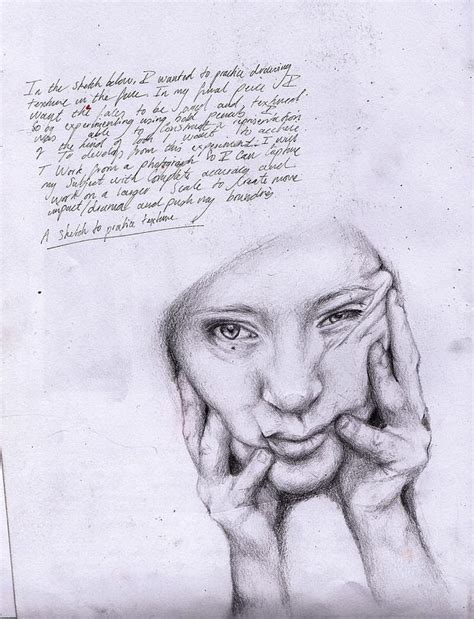 In the sketch below, I wanted to practice drawing
texture in the face. In my final piece I
want the faces to be and textured.
So by experimenting using bold pencils I
was able to construct a representation
of the kind of look I want to achieve
To develop from this experiment I must
Work from a photograph so I can capture
my subject with complete accuracy and
work on a larger scale to create more
impact/drama and push my boundries
A sketch to practice texture